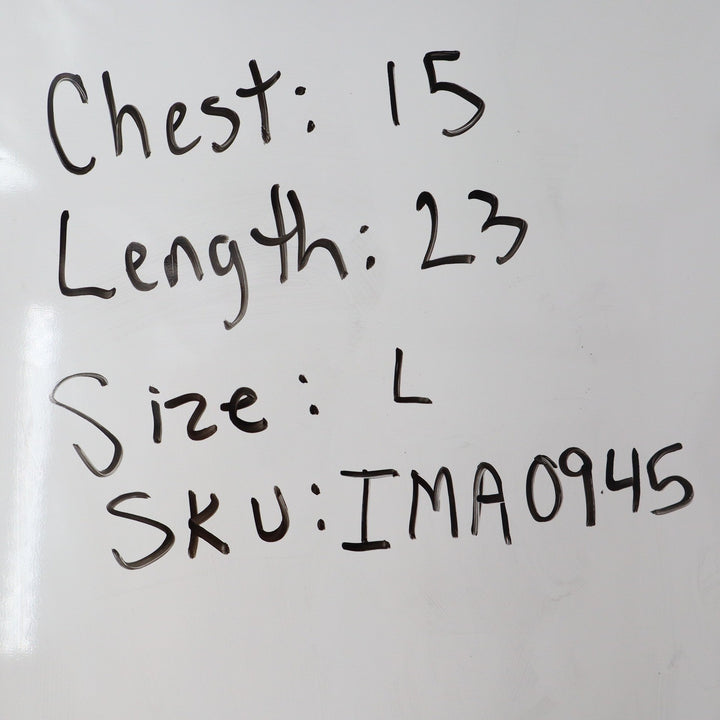 Chest: 15
Length: 23
Size: L
SKU: IMA0945